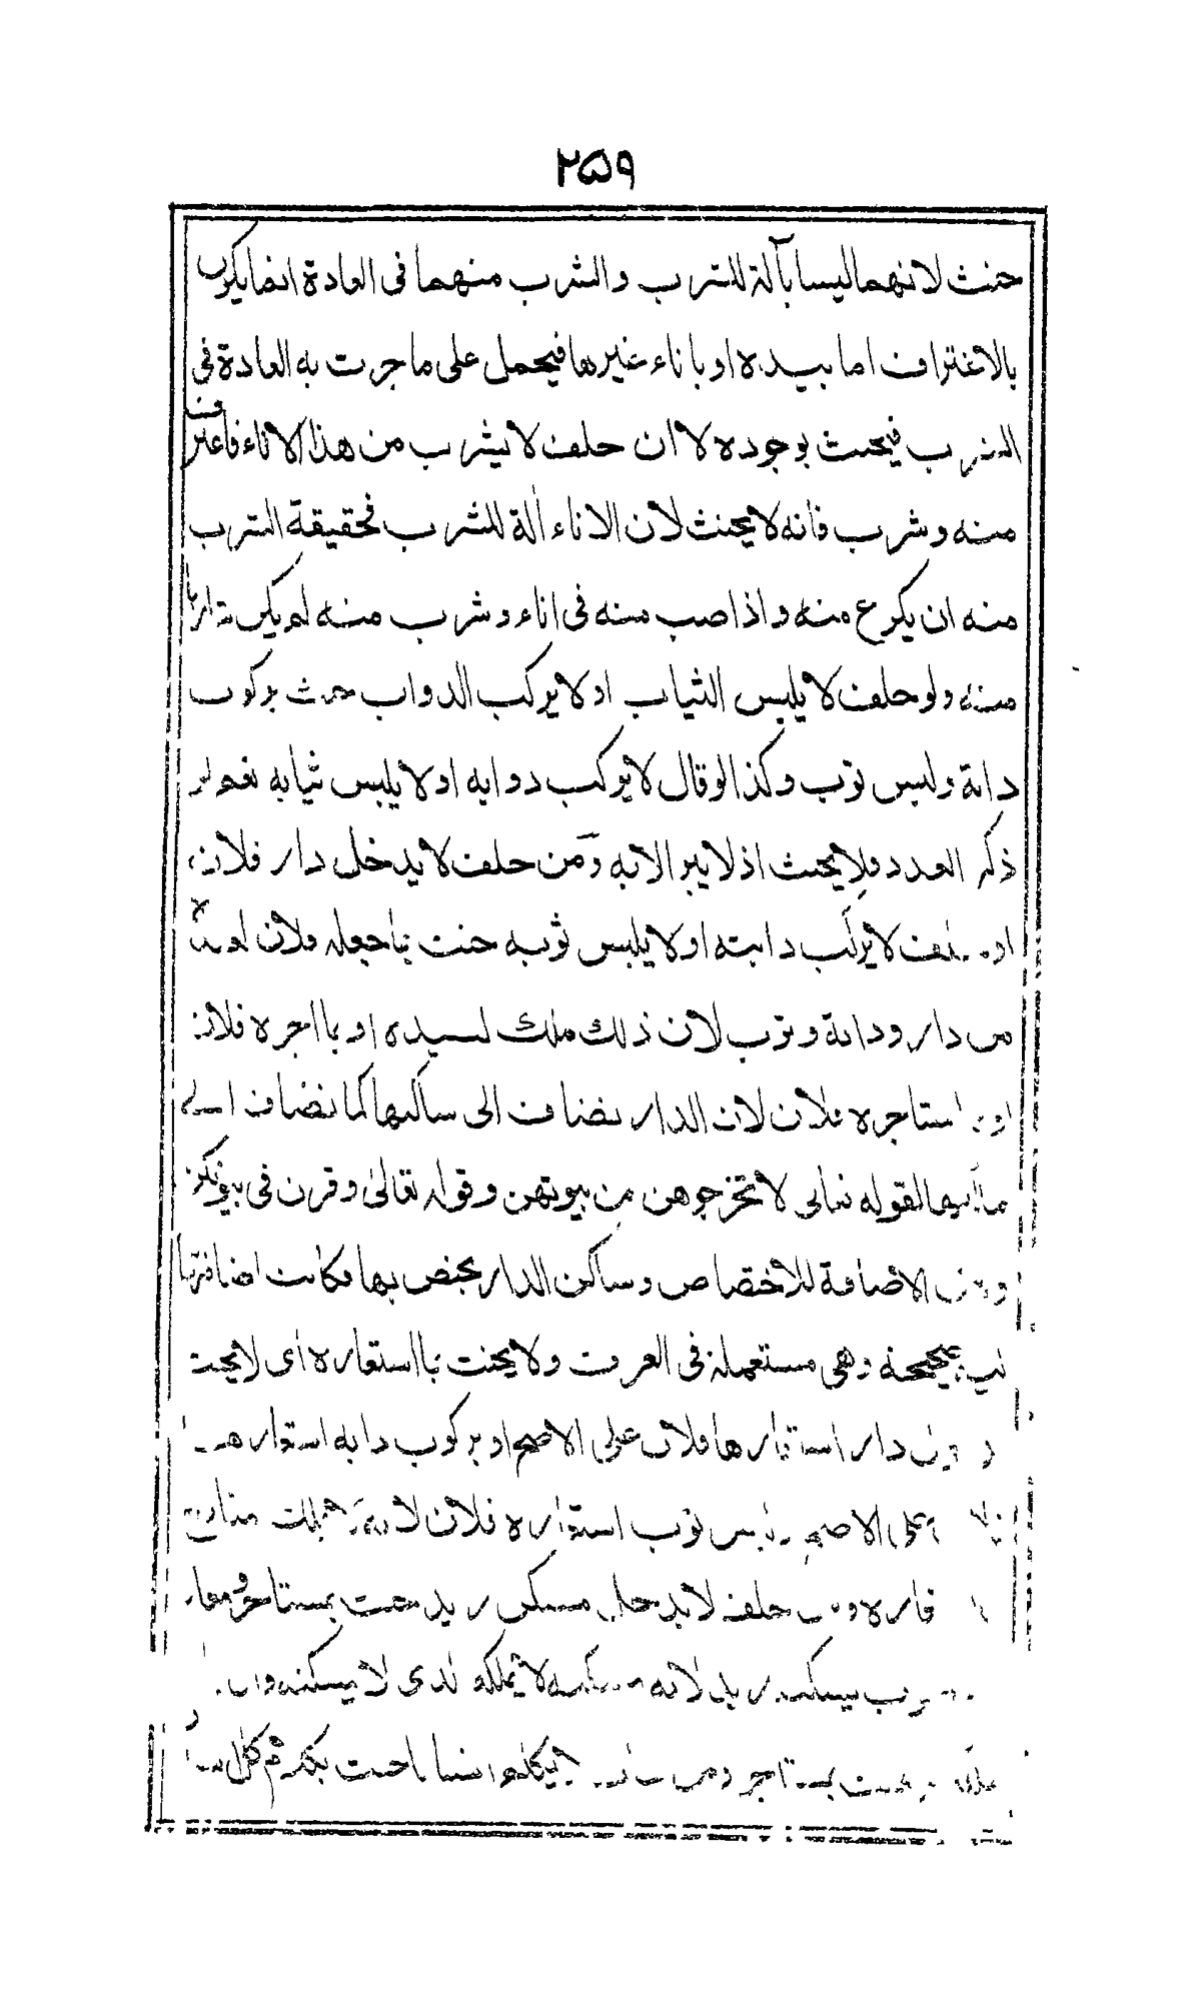 ۲۵۹
حنث لانهما ليسا بآلة للشرب والشرب منهما فى العادة انما يكون
بالاغتراف اما بيده او باناء غيرها فيحمل على ما جرت به العادة فى
الشرب فيحنث بوجوده لا ان حلف لا يشرب من هذا الاناء فاغترف
منه وشرب فانه لا يحنث لان الاناء آلة للشرب فحقيقة الشرب
منه ان يكرع منه واذا صب منه فى اناء وشرب منه لم يكن شاربا
منه ولو حلف لا يلبس الثياب او لا يركب الدواب حنث بركوب
دابة ولبس ثوب وكذا لو قال لا يركب دوابه او لا يلبس ثيابه نعم لو
ذكر العدد فلا يحنث اذ لا يبر الا به ومن حلف لا يدخل دار فلان
او حلف لا يركب دابته او لا يلبس ثوبه حنث بما جعله فلان لعبده
من دار ودابة وثوب لان ذلك ملك لسيده او بما اجره فلان
او استاجره فلان لان الدار تضاف الى ساكنها كما تضاف الى
مالكها لقوله تعالى لا تخرجوهن من بيوتهن وقوله تعالى وقرن فى بيوتكن
الاضافة للاختصاص وساكن الدار مختص بها فكانت اضافتها
صحيحة وهى مستعملة فى العرف ولا يحنث بما استعاره اى لا يحنث
دار استعارها فلان على الاصح او بركوب دابة استعارها
على الاصح ثوب استعاره فلان منافع
حلف لا يدخل مسكن زيد حنث بمستاجر ومعار
زيد لانه مسكنه لا بملكه الذى لا يسكنه
انسانا حنث